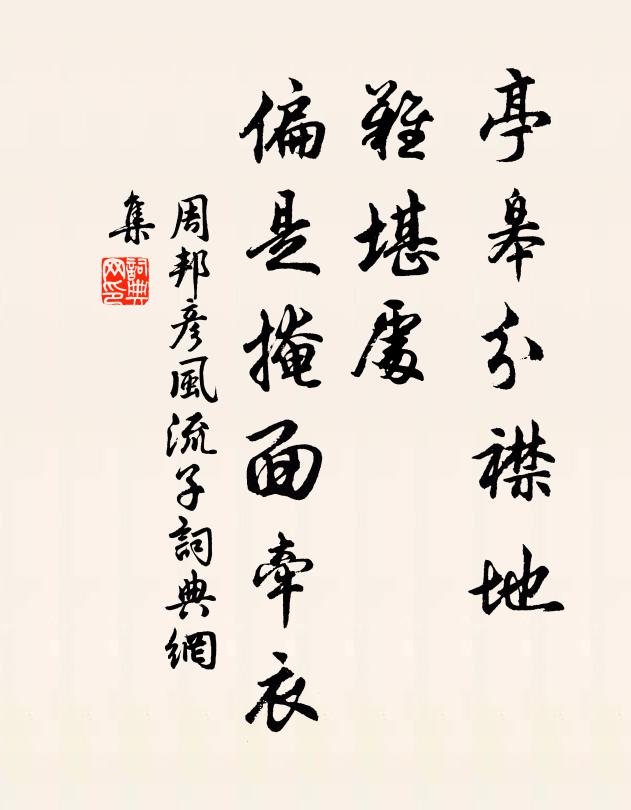 亭皋分襟地
難堪處
偏是掩面牽衣
周邦彦風流子詞典網
集
詞典網印